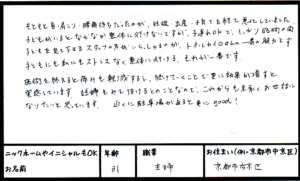 もともと肩・肩こり・腰痛持ちだったのが、妊娠・出産・子育てを経て悪化していました
子どもがいるとなかなか整体に行けないですが、子連れOKで、しかも施術の間
子どもを見て下さるスタッフの方がいらっしゃるのが、トオルカイロさんの一番の魅力です
子どもにも私にもストレスなく整体に行ける、それが一番です。
施術を終えると痛みも軽減するし、続けていくことで更に効果が増すと
実感しています。妊婦もみて頂けるとのことなので、これからも末永くお世話に
なりたいと思っています。近くに駐車場があると更にgood!
ニックネームやイニシャルもOK
お名前
年齢
31
職業
主婦
お住まい(例・京都市中京区)
京都市右京区